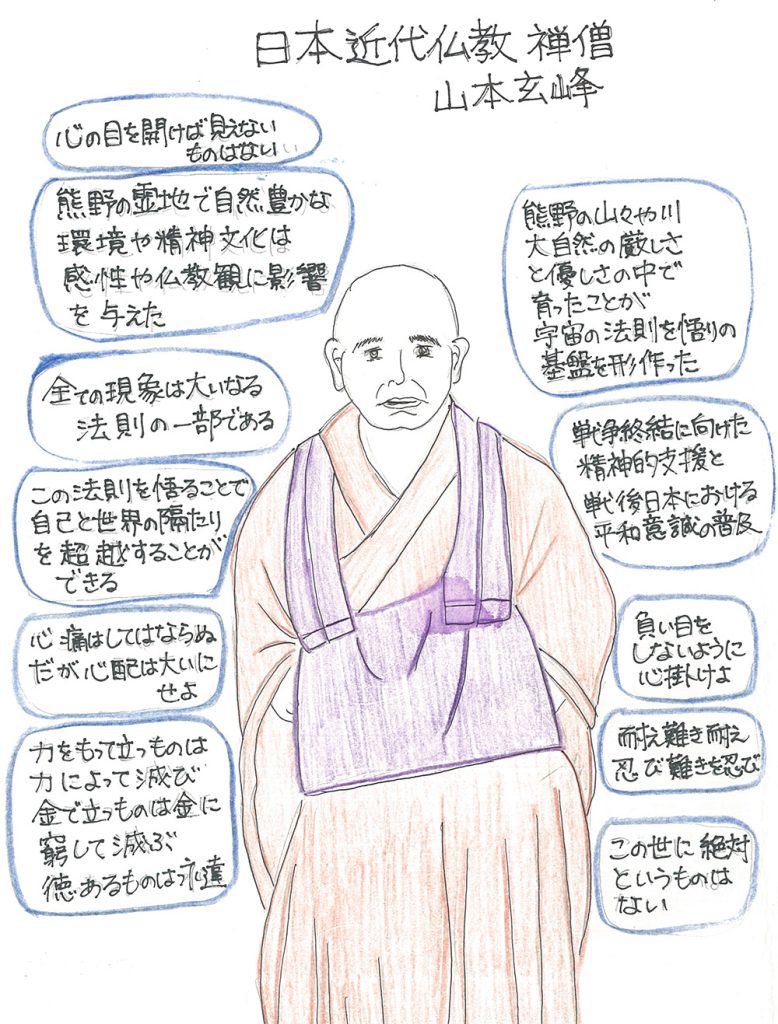 日本近代仏教 禅僧
山本玄峰
心の目を開けば見えない
ものはない
熊野の霊地で自然豊かな
環境や精神文化は
感性や仏教観に影響
を与えた
全ての現象は大いなる
法則の一部である
この法則を悟ることで
自己と世界の隔たり
を超越することが
できる
心痛はしてはならぬ
だが心配は大いに
せよ
力をもって立つものは
力によって滅び
金で立つものは金に
窮して滅ぶ
徳あるものは永遠
熊野の山々や川
大自然の厳しさ
と優しさの中で
育ったことが
宇宙の法則を悟りの
基盤を形作った
戦争終結に向けた
精神的支援と
戦後日本における
平和意識の普及
負い目を
しないように
心掛けよ
耐え難き耐え
忍び難きを忍び
この世に絶対
というものは
ない